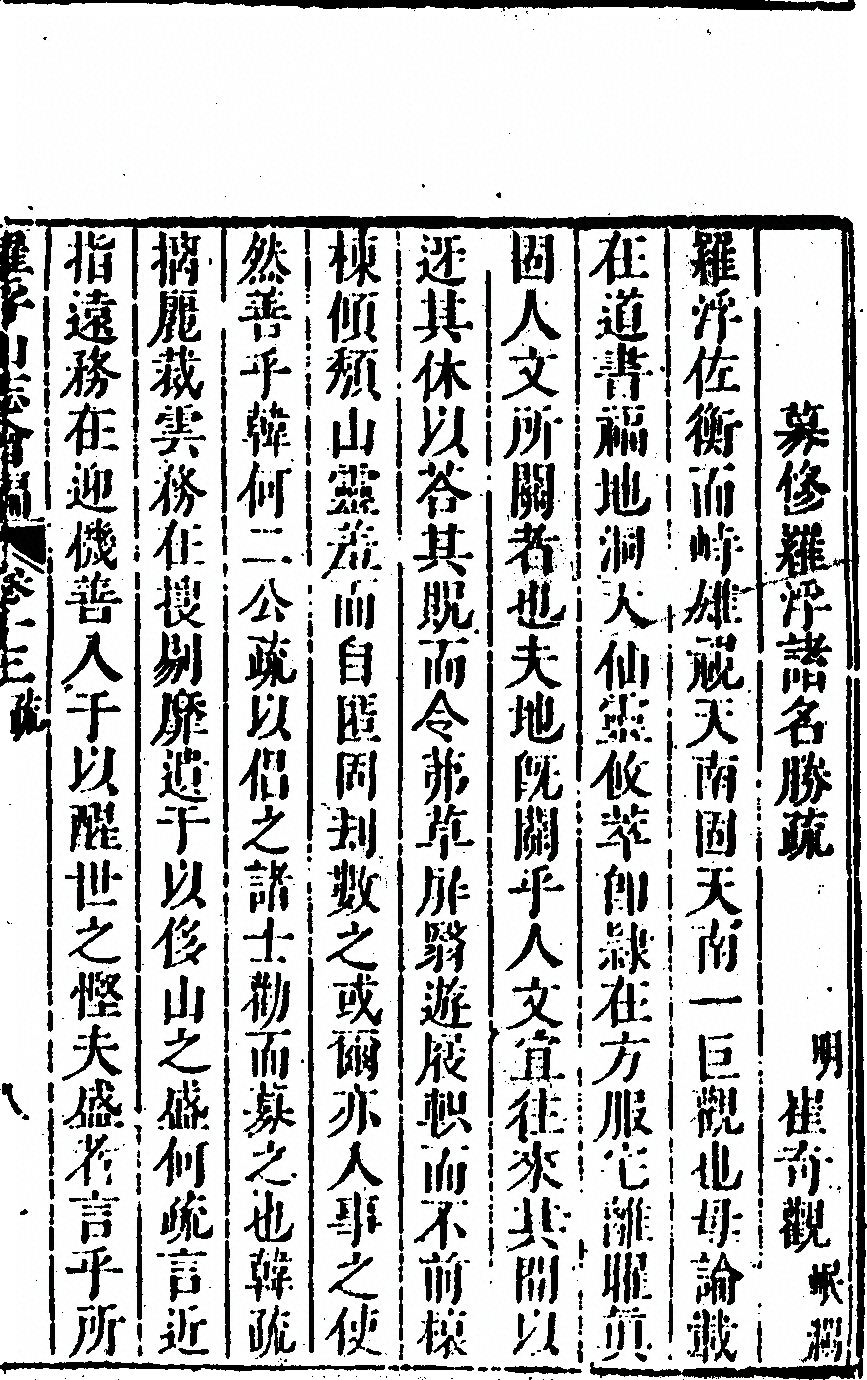 募修羅浮諸名勝疏 明崔奇觀岷濤
羅浮佐衡而峙雄視天南固天南一巨觀也毋論載
在道書福地洞天仙靈攸萃卽隷在方服宅離躔眞
固人文所關者也夫地旣關乎人文宜往來其間以
迓其休以荅其貺而今茀草扉翳遊屐軹而不前榱
棟傾頽山靈羞而自匿固刦數之或爾亦人事之使
然善乎韓何二公疏以倡之諸士勸而募之也韓疏
摛麗裁雲務在搜剔靡遺于以侈山之盛何疏言近
指遠務在迎機善人于以醒世之慳夫盛者言乎所
羅浮山志會編 卷十三 疏